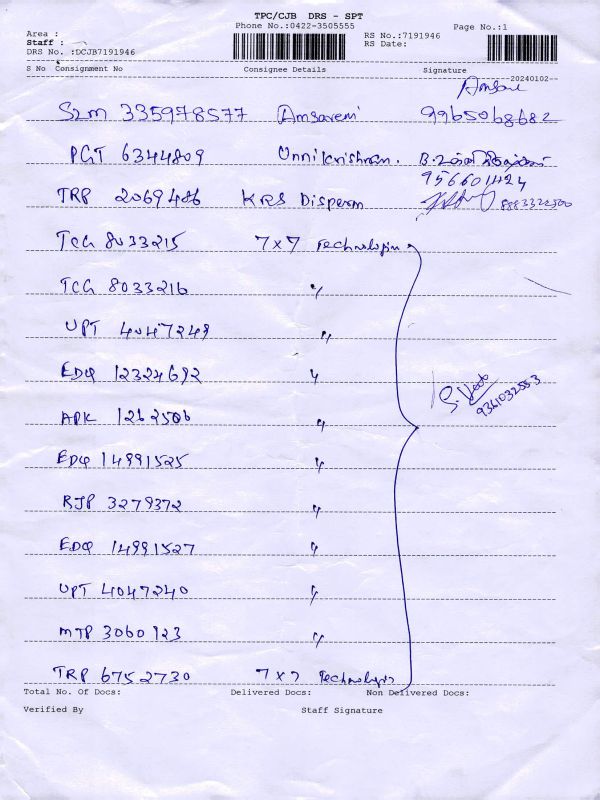 TPC/CJB DRS - SPT
Phone No.:0422-3505555
Page No.:1
Area :
Staff :
DRS No. :DCJB7191946
RS No.:7191946
RS Date:
S No Consignment No Consignee Details Signature
--20240102--
SLM 335978577 Amsaveni 9965068682
PGT 6344809 Unnikrishnan.
9566011424
TRP 2069486 KRS
TCG 8033215 7x7 Technologies
TCG 8033216 〃
UPT 4047249 〃
EDQ 12324692 〃
APK 1262506 〃
9361032553
EDQ 14991525 〃
RJP 3279372 〃
EDQ 14991527 〃
UPT 4047240 〃
MTP 3060123 〃
TRP 6752730 7x7 Technologies
Total No. Of Docs: Delivered Docs: Non Delivered Docs:
Verified By Staff Signature